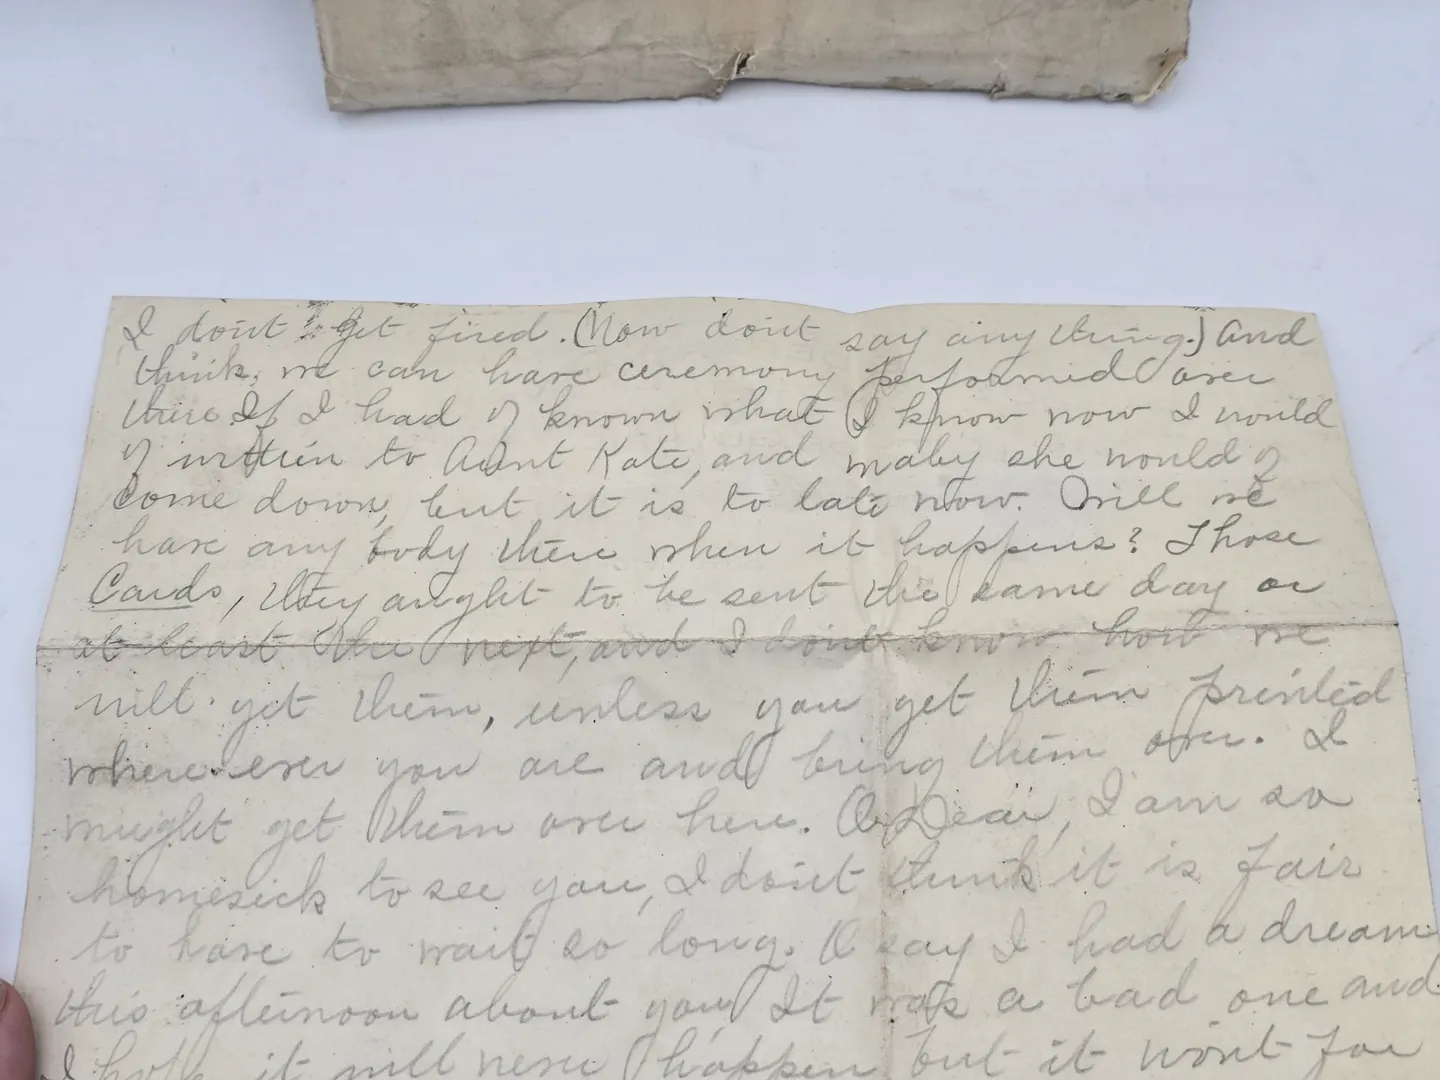 I don't get fired. (Now don't say any thing.) And
think, we can have ceremony performed over
there If I had of known what I know now I would
of written to Aunt Kate, and maby she would of
come down, but it is to late now. Will we
have any body there when it happens? Those
Cards, they aught to be sent the same day or
at least the next, and I don't know how we
will get them, unless you get them printed
where ever you are and bring them over. I
might get them over here. O Dear, I am so
homesick to see you, I don't think it is fair
to have to wait so long. O say I had a dream
this afternoon about you, It was a bad one and
I hope it will never happen but it wont for